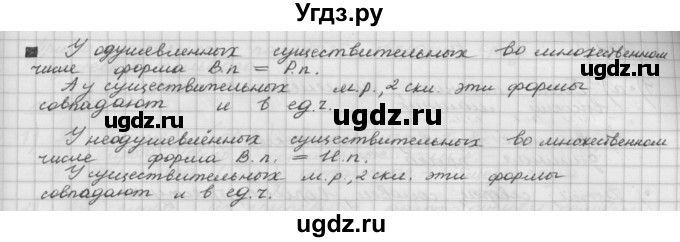 Угдз.ру
У одушевленных существительных во множественном
числе форма В.п = Р.п.
А у существительных м.р., 2 скл. эти формы
совпадают и в ед.ч.
У неодушевлённых существительных во множественном
числе форма В.п. = И.п.
У существительных м.р., 2 скл. эти формы
совпадают и в ед.ч.
ugdz.ru ugdz.ru ugdz.ru
ugdz.ru ugdz.ru ugdz.ru